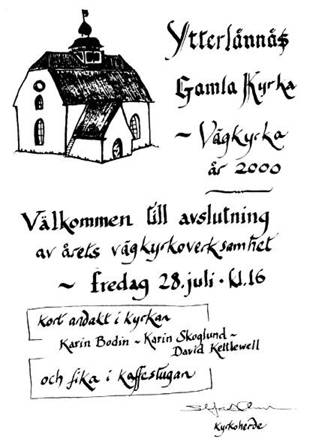 Ytterlännäs
Gamla Kyrka
~ Vägkyrka
år 2000
Välkommen till avslutning
av årets vägkyrkoverksamhet
~ fredag 28. juli · kl. 16
kort andakt i kyrkan
Karin Bodin ~ Karin Skoglund ~
David Kettlewell
och fika i kaffestugan
Kyrkoherde